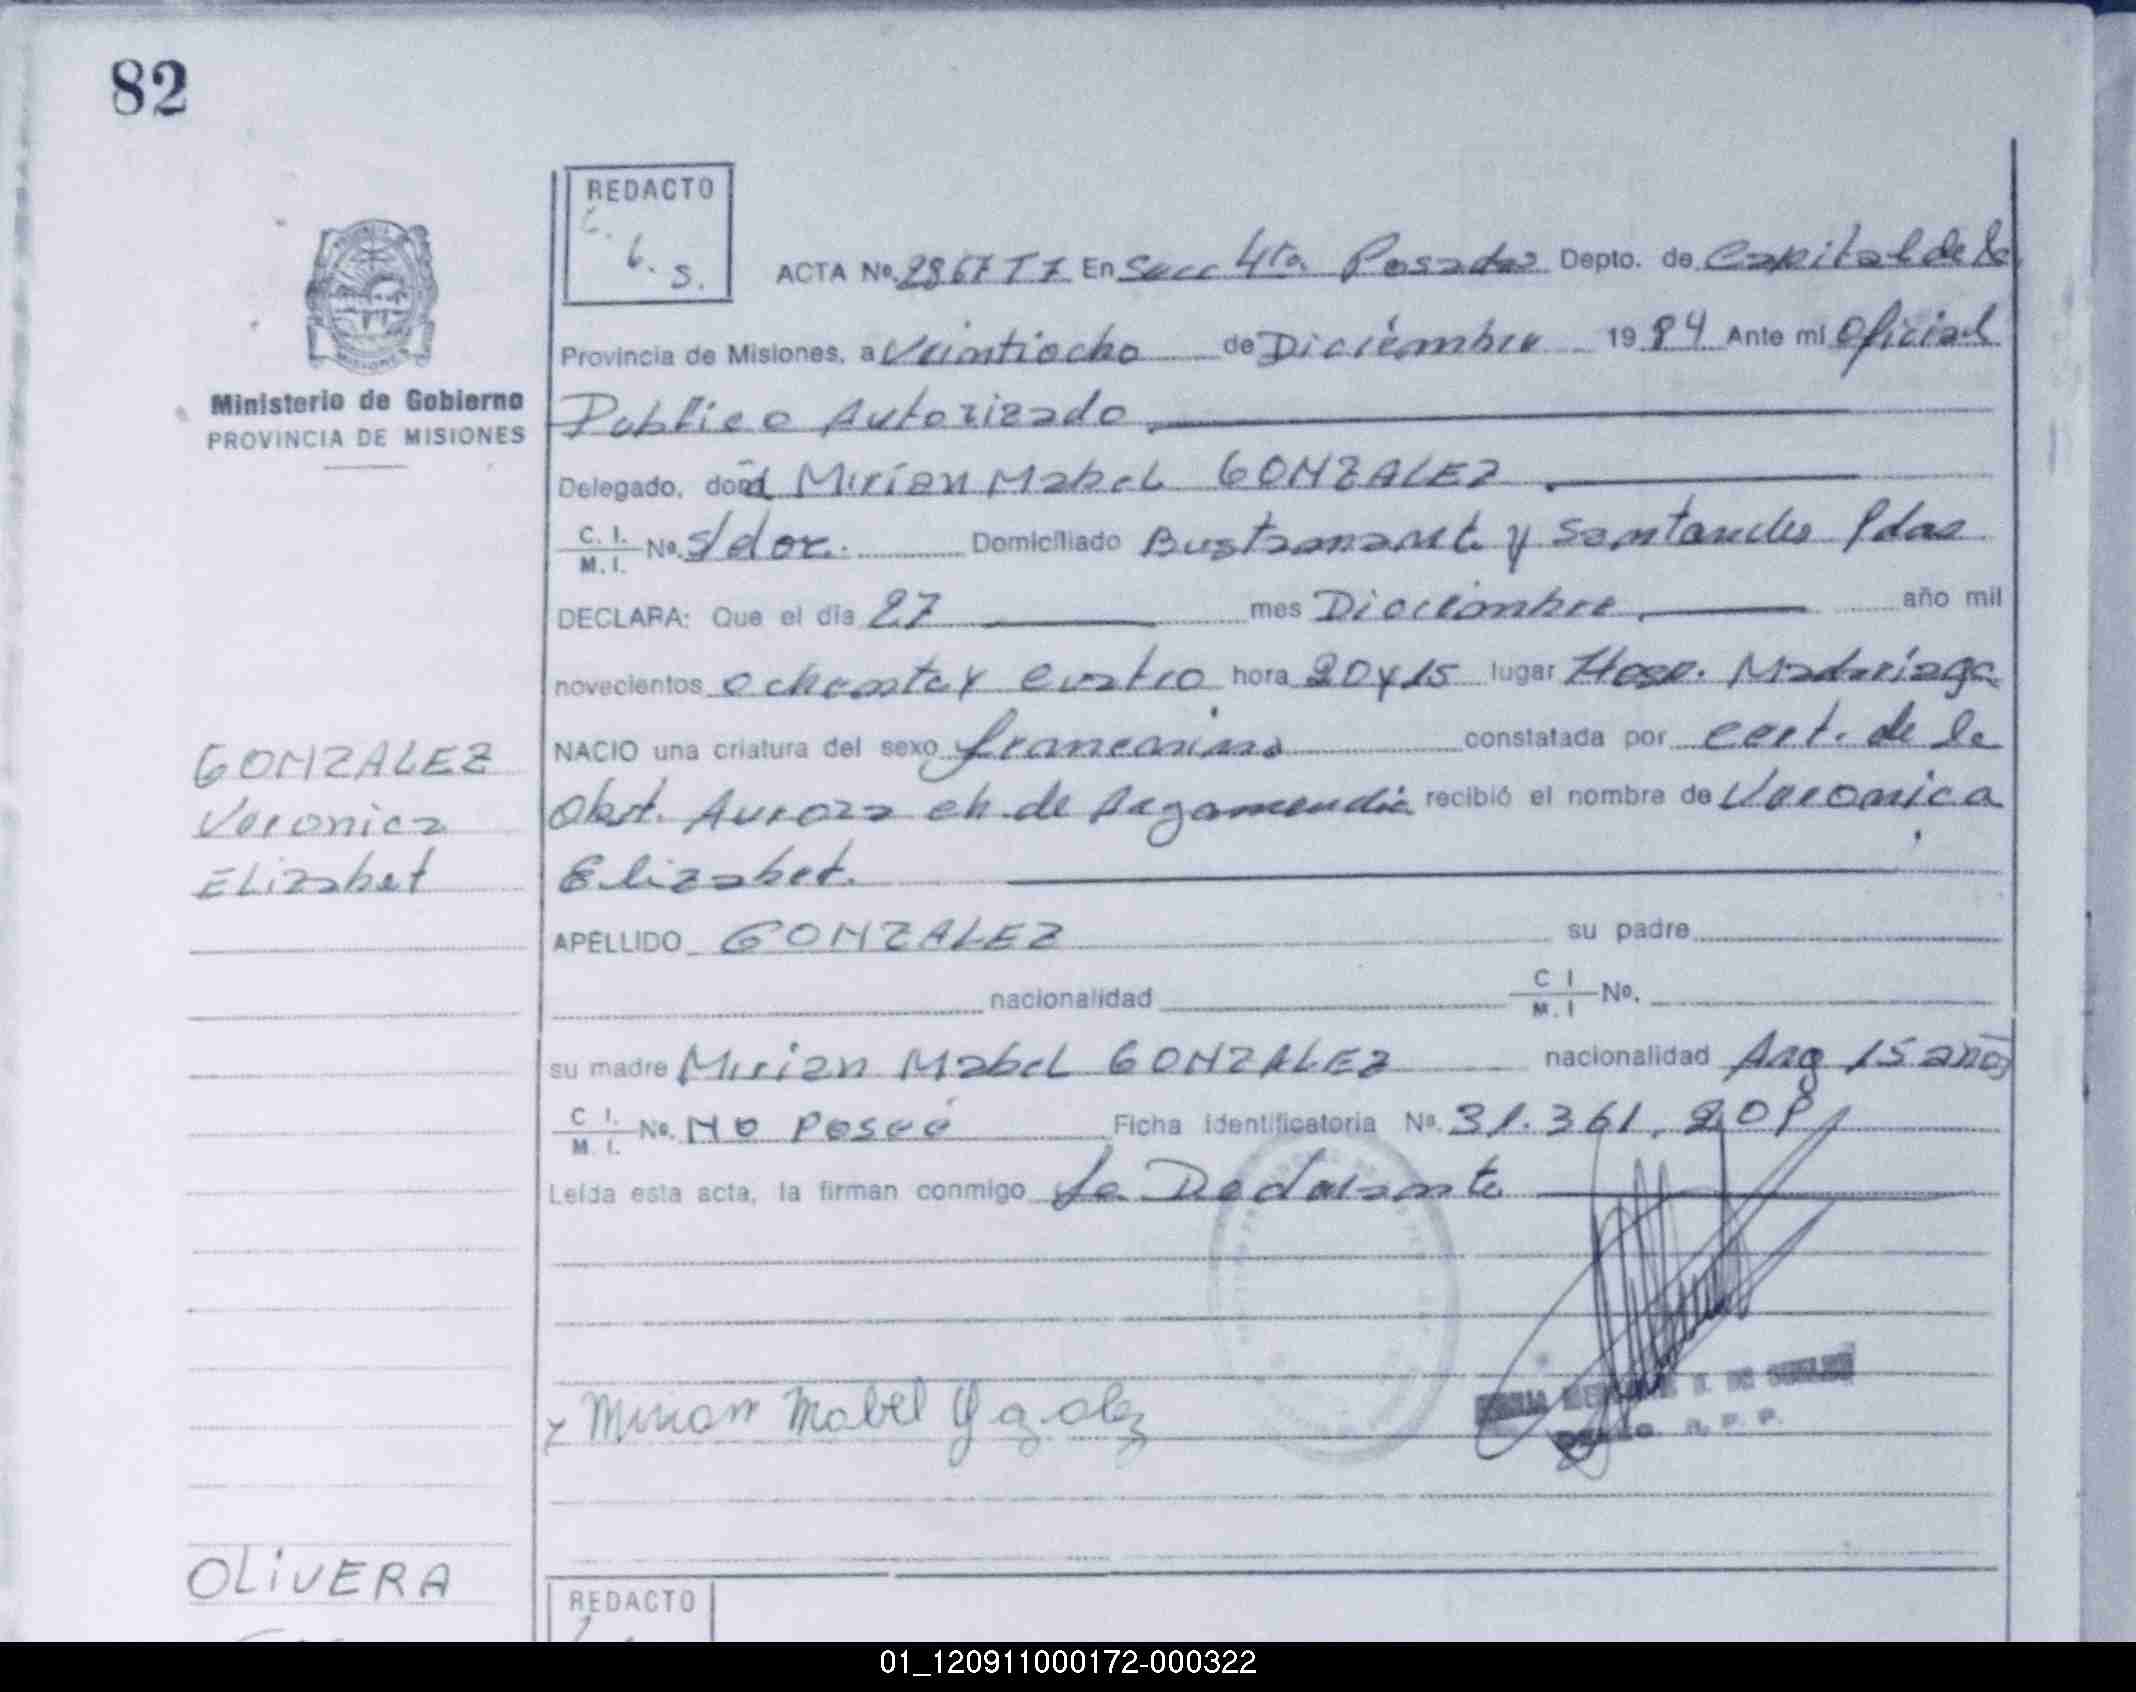 82
REDACTO
C.
b.
s.
ACTA No. 2867 T 7 En Secc 4ta. Posadas Depto. de Capital de la
Provincia de Misiones, a Veintiocho de Diciembre 1984 Ante mi Oficial
Publico Autorizado
Ministerio de Gobierno
PROVINCIA DE MISIONES
Delegado, doña Mirian Mabel GONZALEZ
C. I. No. s/doc. Domiciliado y Santander Pdas
M. I.
DECLARA: Que el día 27 mes Diciembre año mil
novecientos ochenta y cuatro hora 20 y 15 lugar Hosp. Madariaga
NACIO una criatura del sexo femenino constatada por cert. de la
Obst. Aurora ch. de recibió el nombre de Veronica
Elizabet.
GONZALEZ
Veronica
Elizabet
APELLIDO GONZALEZ su padre
nacionalidad C I No.
M. I
su madre Mirian Mabel GONZALEZ nacionalidad Arg 15 años
C I. No. No Posee Ficha identificatoria No. 31.361.208
M. I.
Leída esta acta, la firman conmigo La Declarante
x Mirian Mabel
OLIVERA
REDACTO
01_120911000172-000322